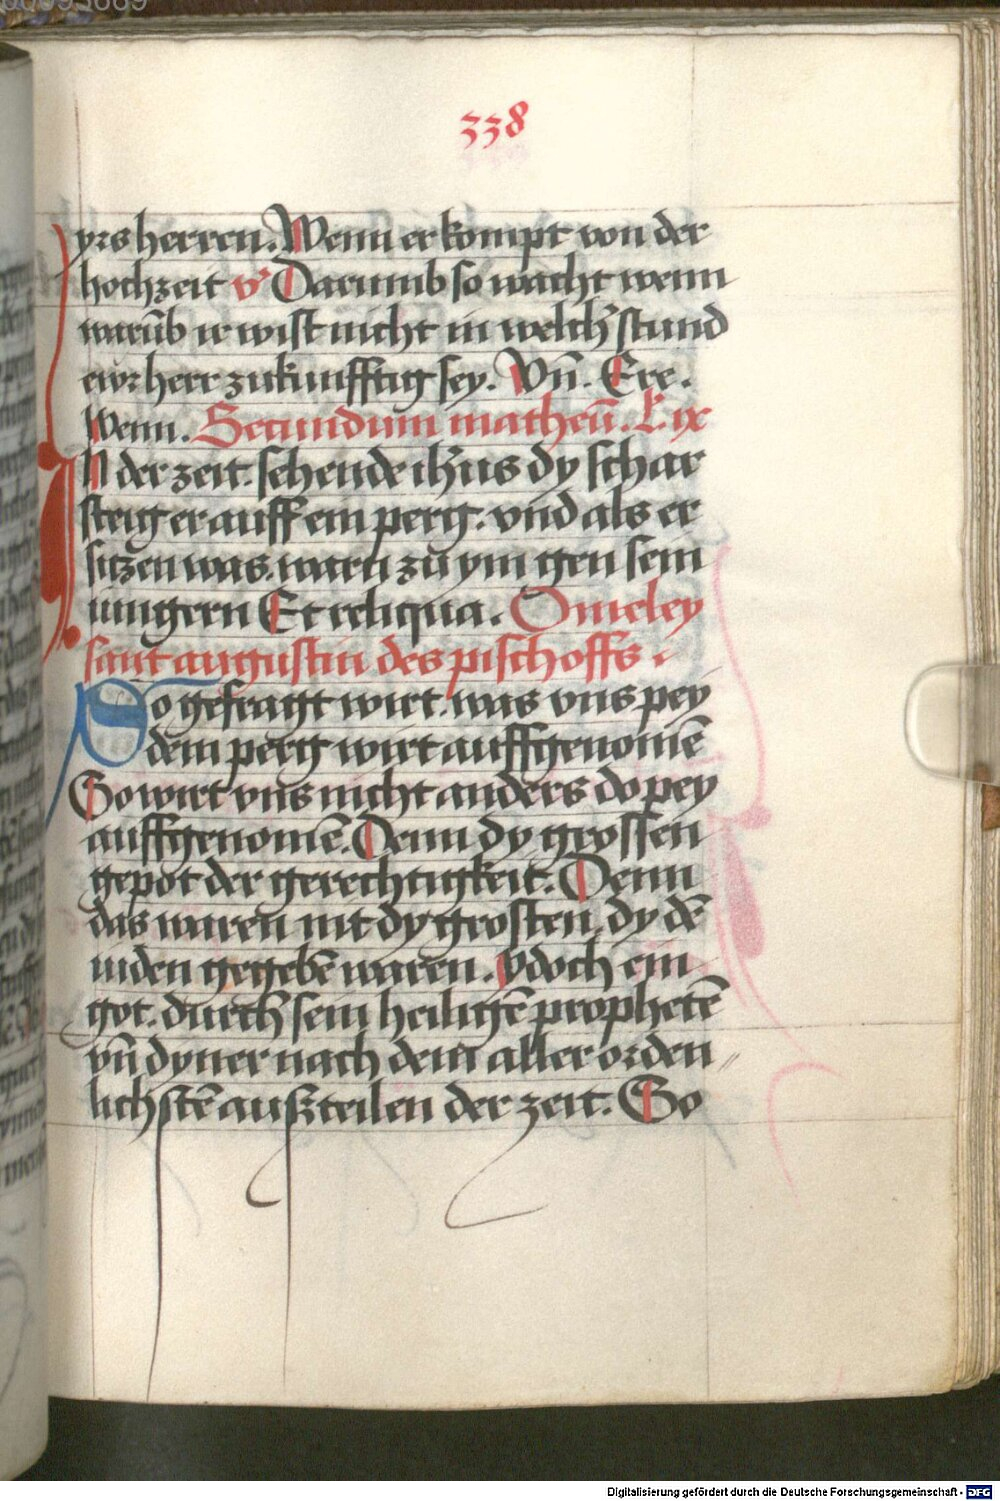 338
yrs herren. Wenn er kompt von der
hochzeit v̕ Darumb so wacht wenn
warūb ir wist nicht in welch̕ stund
ewr herr zukunfftig sey. Vn̄. Ere.
Wenn. Secundum matheū. L ix
IN der zeit. sehende ih̄us dy schar
steig er auff ein perg. vnd als er
sitzen was. waren zu ym gen sein
iungern Et reliqua. Omeley
sant augustin des pischoffs.
So gefragt wirt. was vns pey
dem perg wirt auffgenomē
So wirt vns nicht anders do pey
auffgenomē. Denn dy grossen
gepot der gerechtigkeit. Denn
das waren nit dy grosten. dy dē
iuden gegebē waren. ydoch ein
got. durch sein heiligē prophetē
vn̄ dyner nach dem aller orden //
lichstē auszteilen der zeit. So
Digitalisierung gefördert durch die Deutsche Forschungsgemeinschaft - DFG